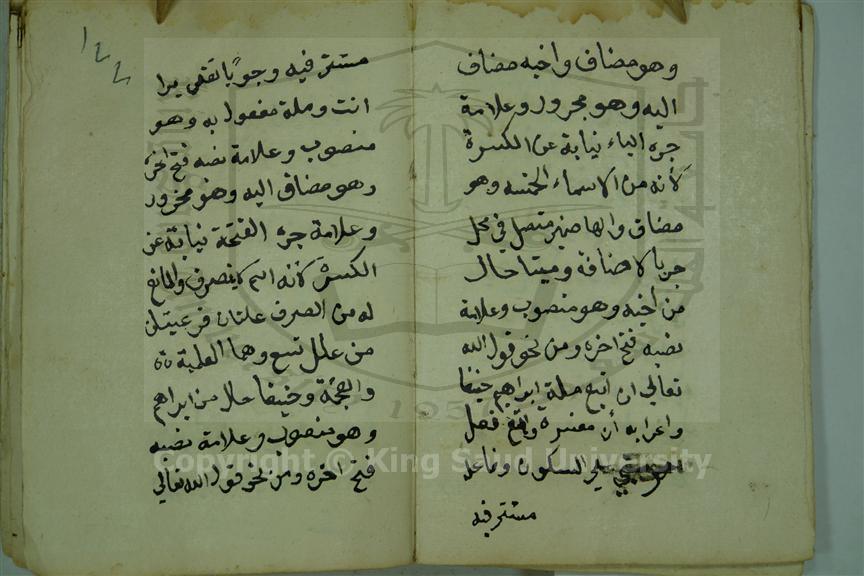 وهو مضاف واخيه مضاف
اليه وهو مجرور وعلامة
جره الياء نيابة عن الكسرة
لأنه من الاسماء الخمسه وهو
مضاف والها ضمير متصل في محل
جر بالاضافة وميتا حال
من اخيه وهو منصوب وعلامة
نصبه فتح اخره ومن نحو قول الله
تعالي ان اتبع ملة ابراهيم حنيفا
واعرابه أن مفسرة واتبع فعل
علي السكون وفاعله
مستتر فيه
١٤٤
مستتر فيه وجوبا تقديرا
انت وملة مفعول به وهو
منصوب وعلامة نصبه فتح اخره
وهو مضاف اليه وهو مجرور
وعلامة جره الفتحة نيابة عن
الكسرة لأنه اسم لا ينصرف والمانع
له من الصرف علتان فرعيتان
من علل تسع وهما العلمية
والعجمة وحنيفا حال من ابراهيم
وهو منصوب وعلامة نصبه
فتح اخره ومن نحو قول الله تعالي
Copyright © King Saud University
1957